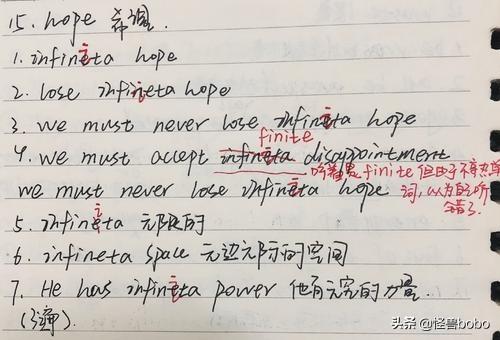 15. hope 希望
1. infineta hope
2. lose infineta hope
3. we must never lose infineta hope
finite
4. we must accept infineta disappointment
听着是finite但由于不存在单
we must never lose infineta hope 词,以为自己听
错了
5. infineta 无限的
6. infineta space 无边无际的空间
7. He has infineta power 他有无穷的力量.
头条 @怪兽bobo